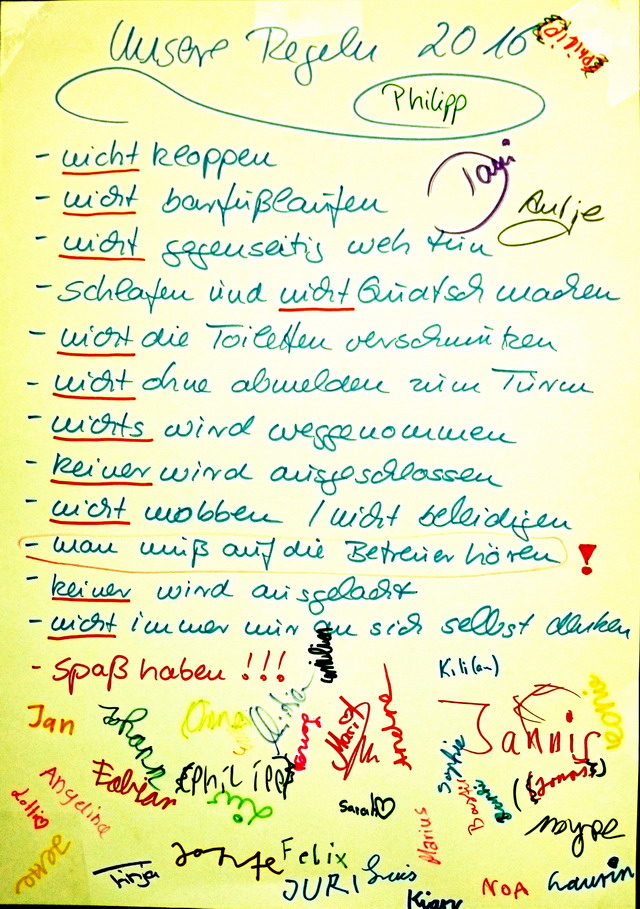 Unsere Regeln 2016
Philipp
- nicht kloppen
- nicht barfußlaufen
Antje
- nicht gegenseitig weh tun
- Schlafen und nicht Quatsch machen
- nicht die Toiletten verschmutzen
- nicht ohne abmelden zum Turm
- nichts wird weggenommen
- keiner wird ausgeschlossen
- nicht mobben / nicht beleidigen
- man muß auf die Betreuer hören !
- keiner wird ausgelacht
- nicht immer nur an sich selbst denken
- Spaß haben !!!
Kili(an)
Jan
Johann
Jannis
Marit
Andre
Angelina
Fabian
Philipp
Sophie
Lolli
Sarah
Marius
Felix
JURI
Luis
Kian
NOA
Laurin